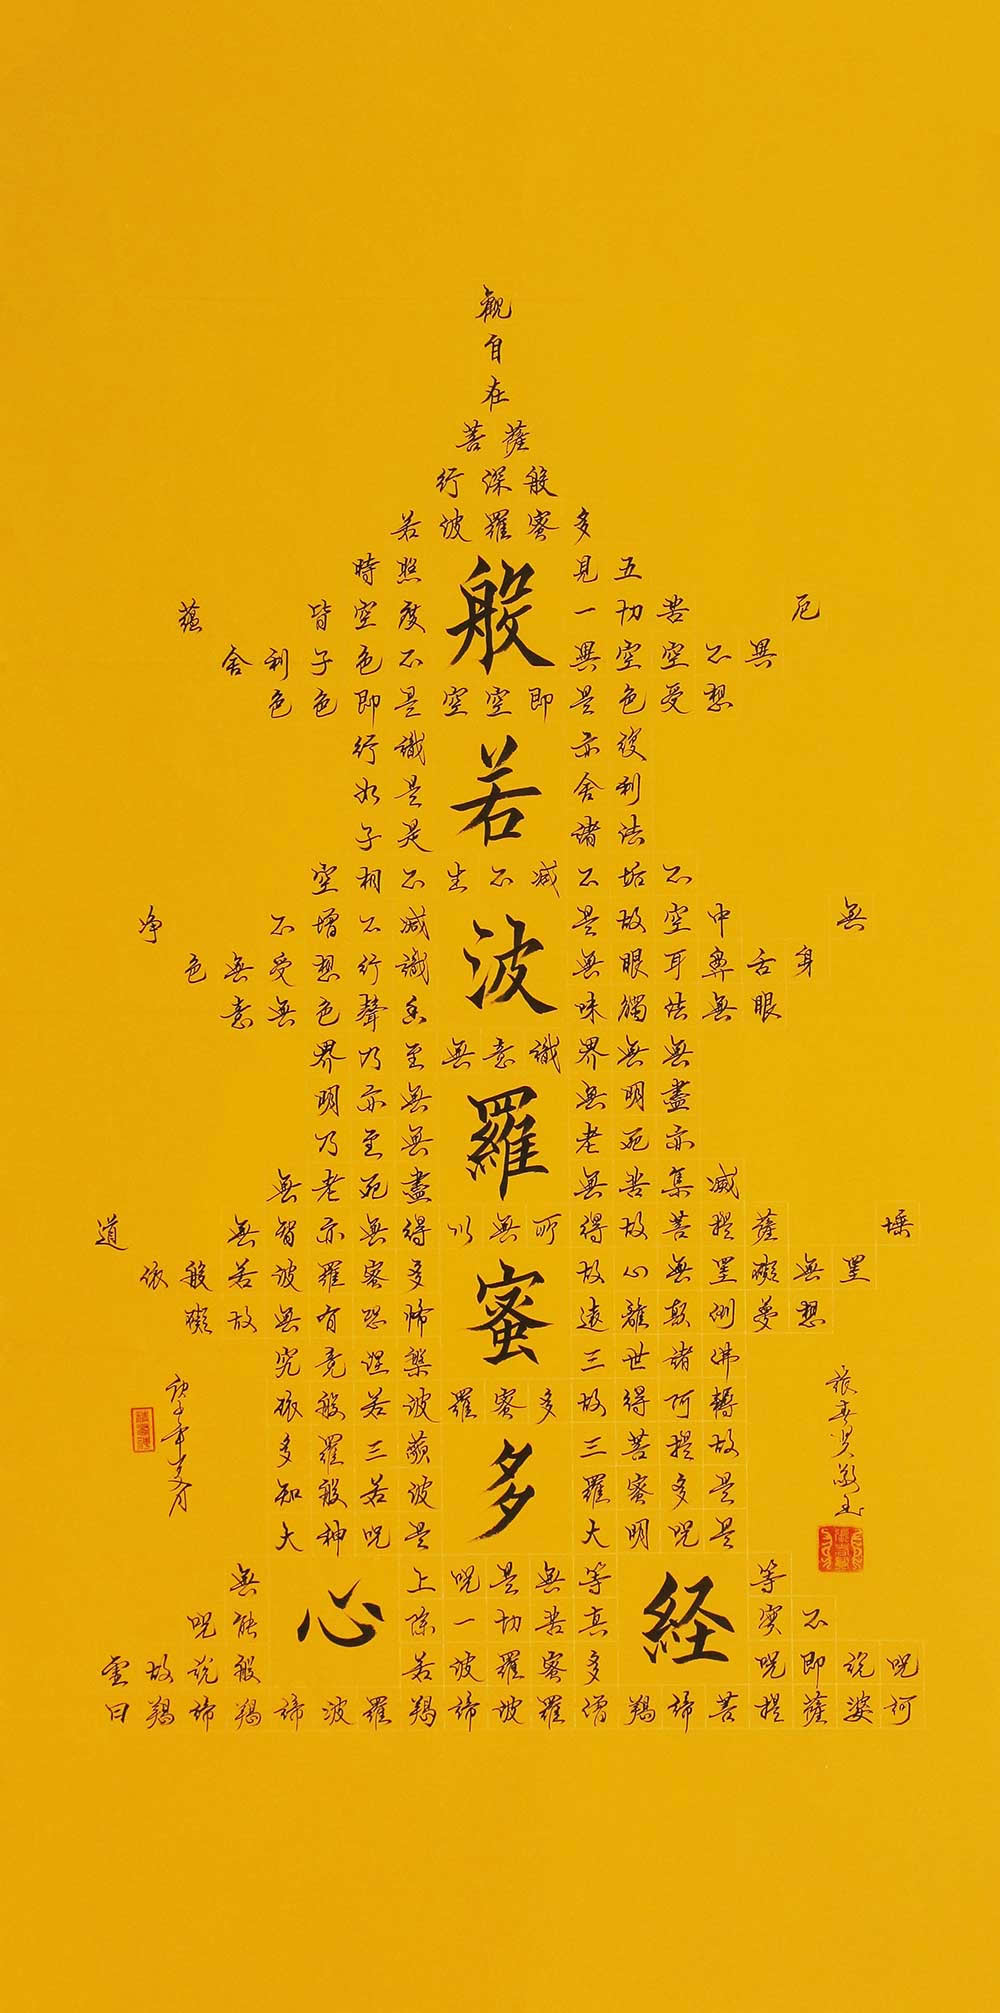 觀
自
在
菩薩
行深般
若波羅蜜多
時照見五
蘊皆空度一切苦厄
舍利子色不異空空不異
色色即是空空即是色受想
行識亦復
如是舍利
子是諸法
空相不生不滅不垢不
净不增不減是故空中無
色無受想行識無眼耳鼻舌身
意無色聲香味觸法無眼
界乃至無意識界無無
明亦無無明盡
乃至無老死亦
無老死盡無苦集滅
道無智亦無得以無所得故菩提薩埵
依般若波羅蜜多故心無罣礙無罣
礙故無有恐怖遠離顛倒夢想
究竟涅槃三世諸佛
依般若波羅蜜多故得阿耨
多羅三藐三菩提故
知般若波羅蜜多是
大神呪是大明呪是
無上呪是無等等
呪能除一切苦真實不
虛故說般若波羅蜜多呪即說呪
曰羯諦羯諦波羅羯諦波羅僧羯諦菩提薩婆訶
般若波羅蜜多
心経
庚子年